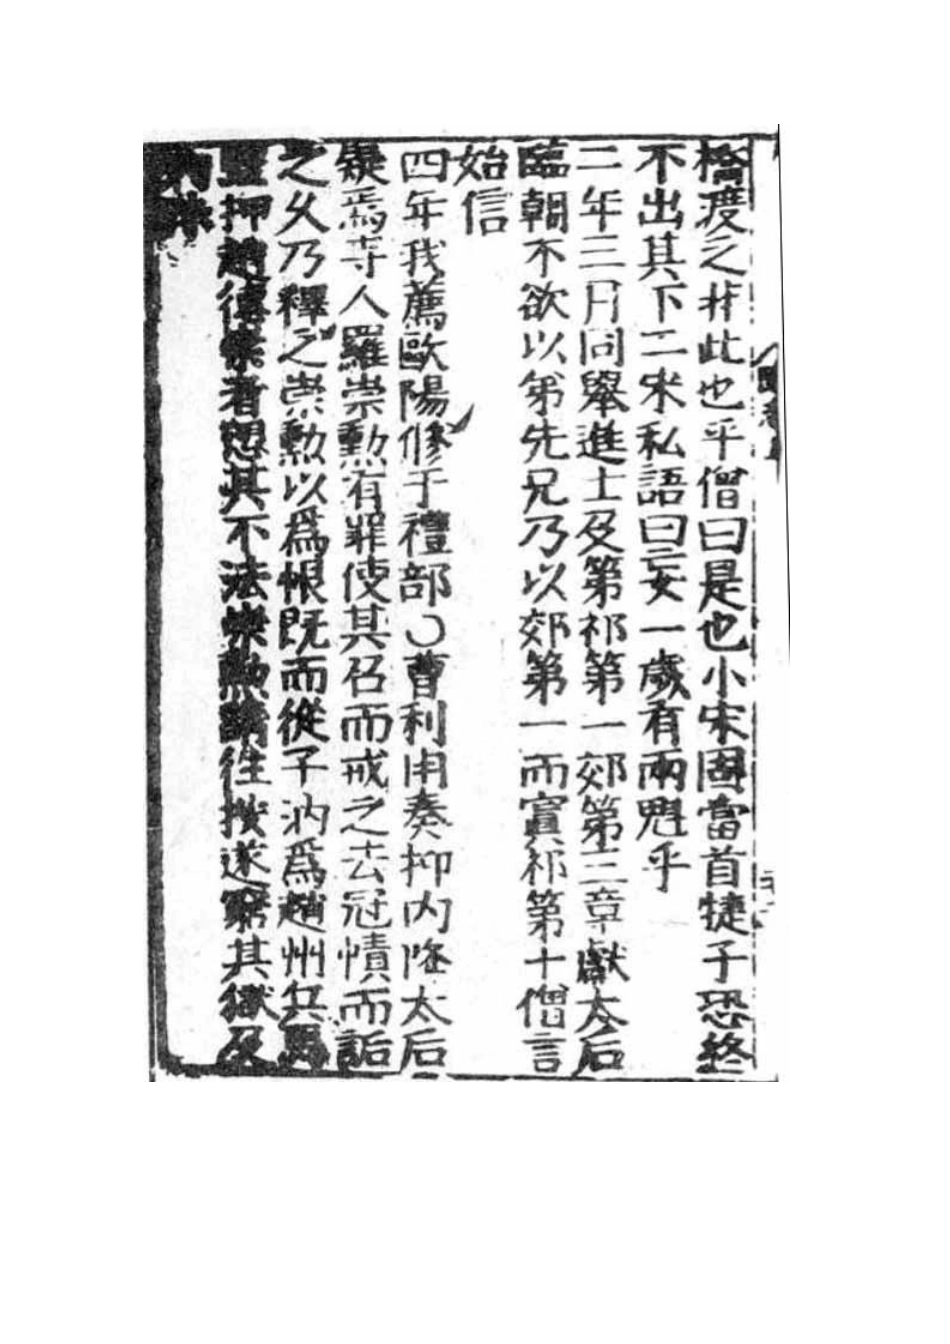 橋渡之非此也乎僧曰是也小宋固當首捷子恐終
不出其下二宋私語曰妄一歲有兩魁乎
二年三月同舉進士及第祁第一郊第三章獻太后
臨朝不欲以弟先兄乃以郊第一而寘祁第十僧言
始信
四年我薦歐陽修于禮部○曹利用奏抑內降太后
疑焉寺人羅崇勲有罪使其召而戒之去冠幘而詬
之久乃釋之崇勲以爲恨既而從子汭爲趙州兵馬
監押趙德崇者愬其不法崇勲請往按遂窮其獄及
汭誅